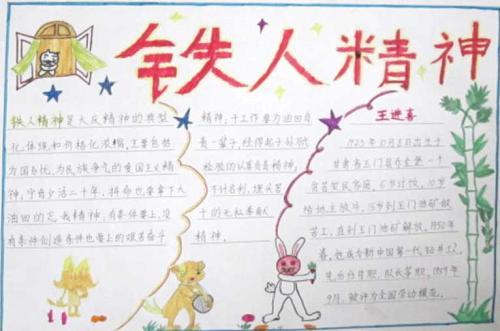 铁人精神
铁人精神是大庆精神的典型
化、体现和价格化浓缩,主要包括
为国分忧,为民族争气的爱国主义精
神,宁可少活二十年,拼命也要拿下大
油田的忘我精神;有条件要上,没
有条件创造条件也要上的艰苦奋斗
精神;干工作要为油田负
责一辈子,经得起子孙
检验的认真负责精神,
不计名利,埋头苦
干的无私奉献
精神。
王进喜
1923年10月8日出生于
甘肃省玉门县赤金堡一个
贫苦农民家庭。6岁讨饭,10岁
给地主放牛,15岁到玉门油矿做
苦工,直到玉门油矿解放。1950年
春,他成为新中国第一代钻井工人,
先后任司钻、队长等职。1959年
9月,被评为全国劳动模范。